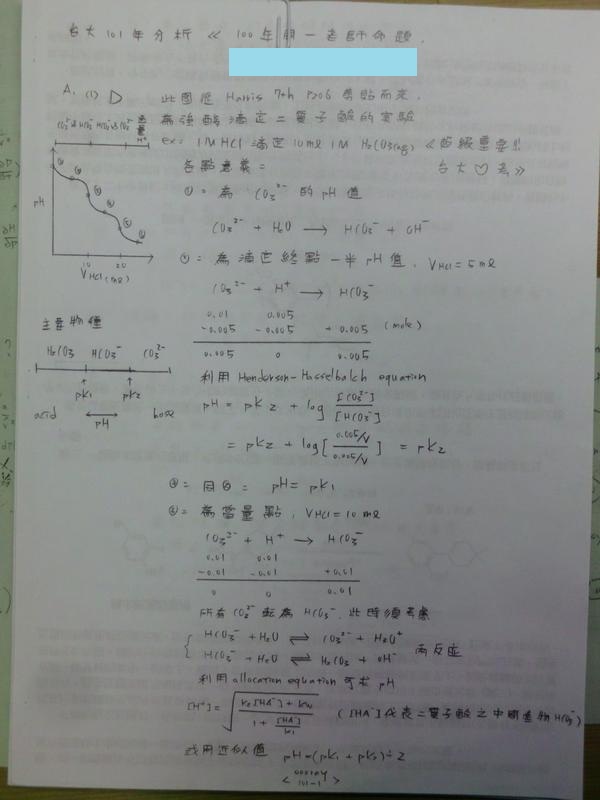 台大 101 年分析 << 100 年 周一老師命題.
A. (1) D 此圖從 Harris 7th P206 剪貼而來.
為強酸滴定二質子酸的實驗
ex: 1M HCl 滴定 10ml 1M H₂CO₃(aq) << 超級重要!!
各點意義= 台大♡考>>
①= 為 CO₃²⁻ 的 pH 值
CO₃²⁻ + H₂O → HCO₃⁻ + OH⁻
pH
10 20
V HCl (ml)
= 為滴定終點一半 pH 值, V HCl = 5 ml
CO₃²⁻ + H⁺ → HCO₃⁻
0.01 0.005
-0.005 -0.005 +0.005 (mole)
0.005 0 0.005
主要物種
H₂CO₃ HCO₃⁻ CO₃²⁻
pK1 pK2
acid ⟷ base
pH
利用 Henderson-Hasselbalch equation
pH = pK2 + log [CO₃²⁻]/[HCO₃⁻]
= pK2 + log[0.005/V / 0.005/V] = pK2
= pH = pK1
= 為當量點, V HCl = 10 ml
CO₃²⁻ + H⁺ → HCO₃⁻
0.01 0.01
-0.01 -0.01 +0.01
0 0 0.01
所有 CO₃²⁻ 転為 HCO₃⁻, 此時須考慮
HCO₃⁻ + H₂O ⇌ CO₃²⁻ + H₃O⁺
HCO₃⁻ + H₂O ⇌ H₂CO₃ + OH⁻ 兩反应
利用 allocation equation 可求 pH
[H⁺] = √((K2[HA⁻] + Kw)/(1 + [HA⁻]/K1)) ([HA⁻]代表二質子酸之中間產物 HCO₃⁻)
或用近似值 pH = (pK1 + pK2) ÷ 2